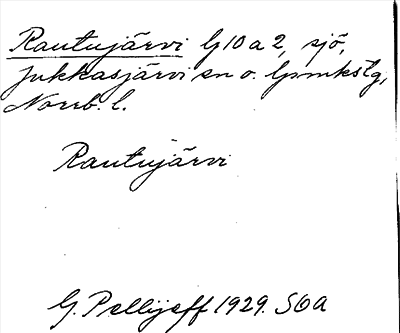 Rautujärvi G10a2, sjö,
Jukkasjärvi sn o. lpmkslg,
Norrb. l.
Rautujärvi
G. Pellijeff 1929. SOA